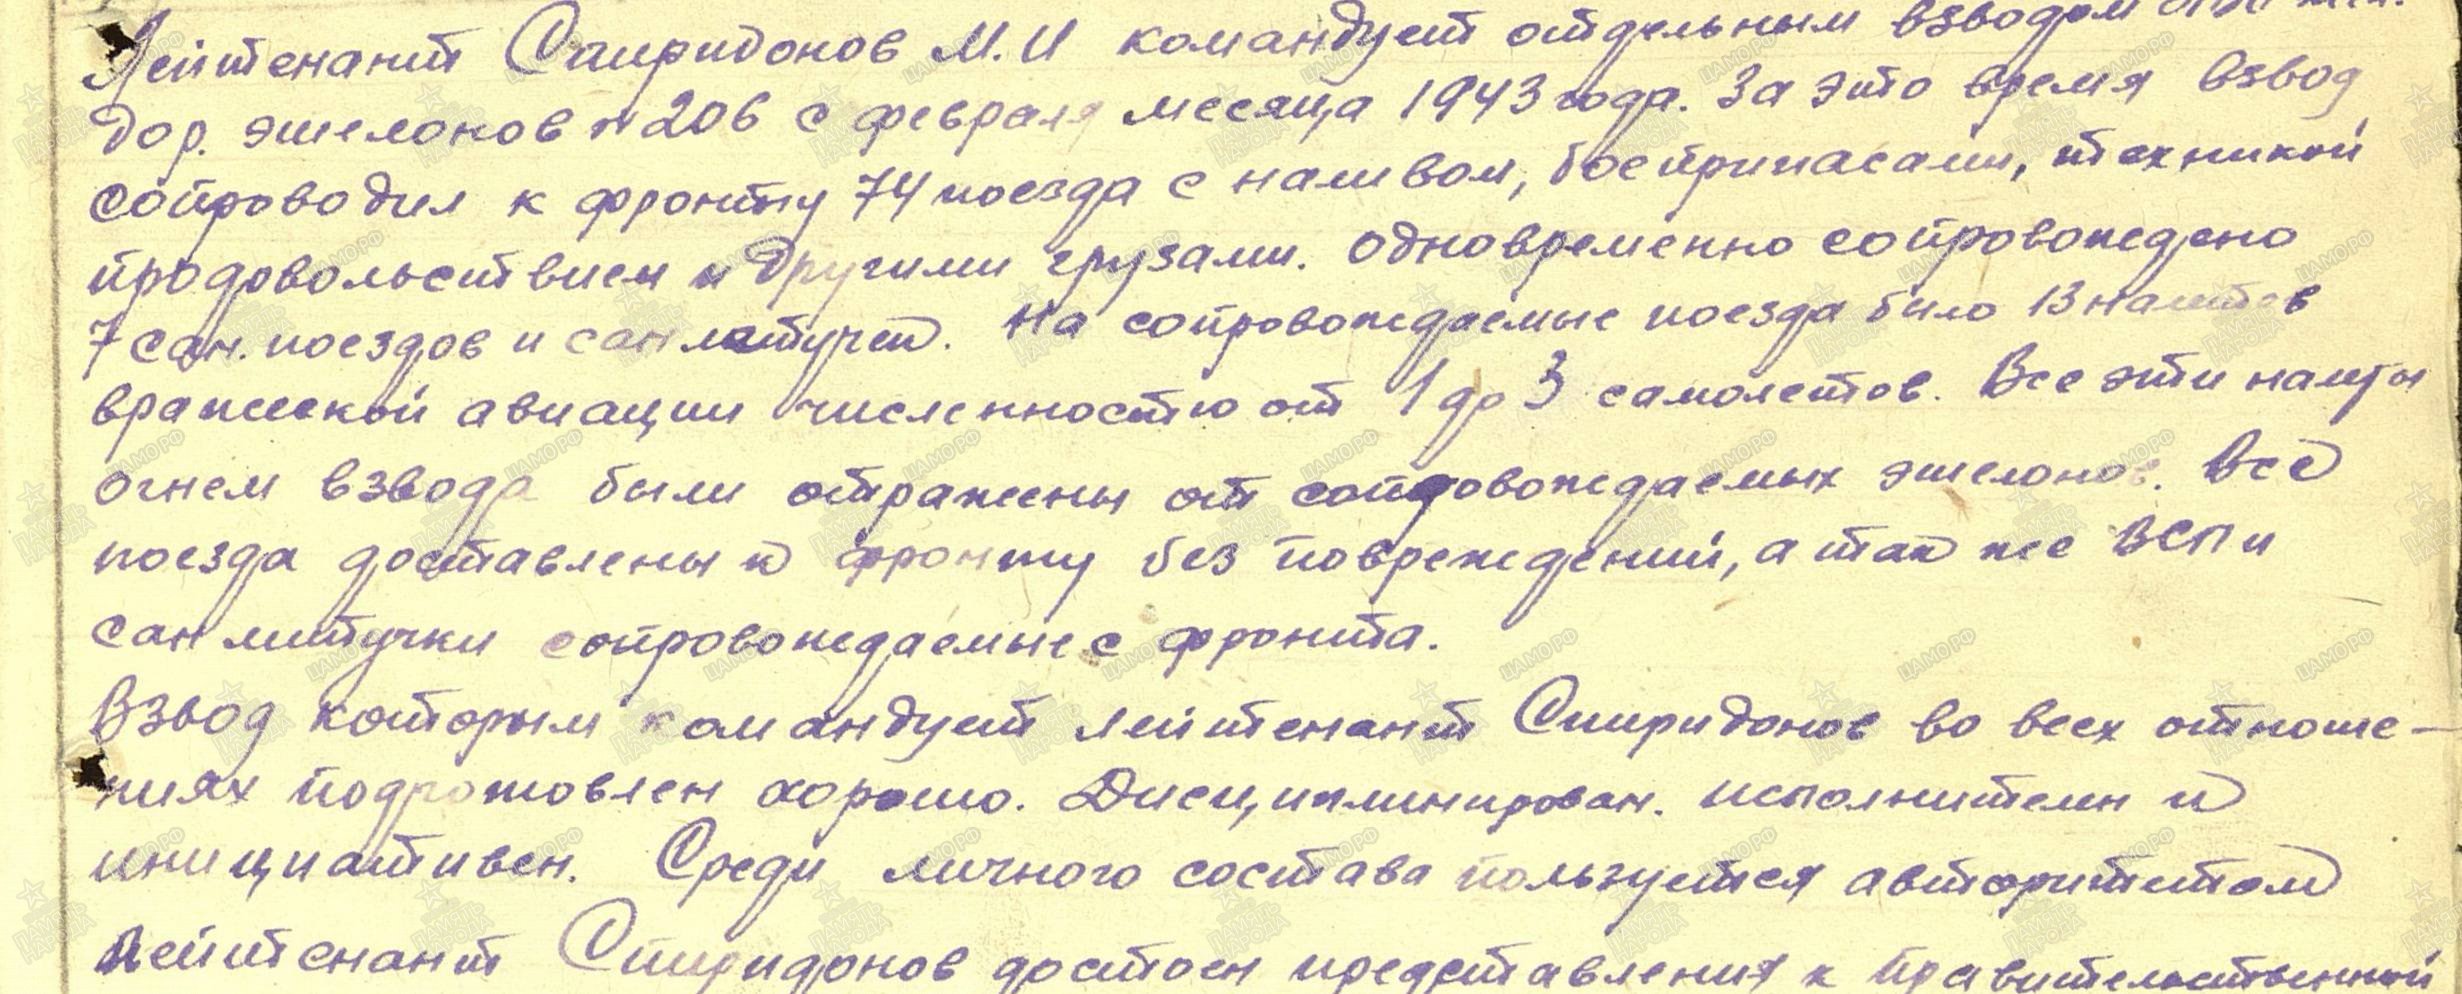 Лейтенант Спиридонов М.И командует отдельным взводом
дор. эшелонов № 206 с февраля месяца 1943 года. За это время взвод
сопроводил к фронту 74 поезда с наливом, боеприпасами, техникой
продовольствием и другими грузами. Одновременно сопровождено
7 сан. поездов и сан летучек. На сопровождаемые поезда было 13 налетов
вражеской авиации численностью от 1 до 3 самолетов. Все эти налеты
огнем взвода были отражены от сопровождаемых эшелонов. Все
поезда доставлены к фронту без повреждений, а так же ВСП и
сан летучки сопровождаемые с фронта.
Взвод которым командует лейтенант Спиридонов во всех отноше-
ниях подготовлен хорошо. Дисциплинирован. исполнителен и
инициативен. Среди личного состава пользуется авторитетом
Лейтенант Спиридонов достоен представления к правительственной